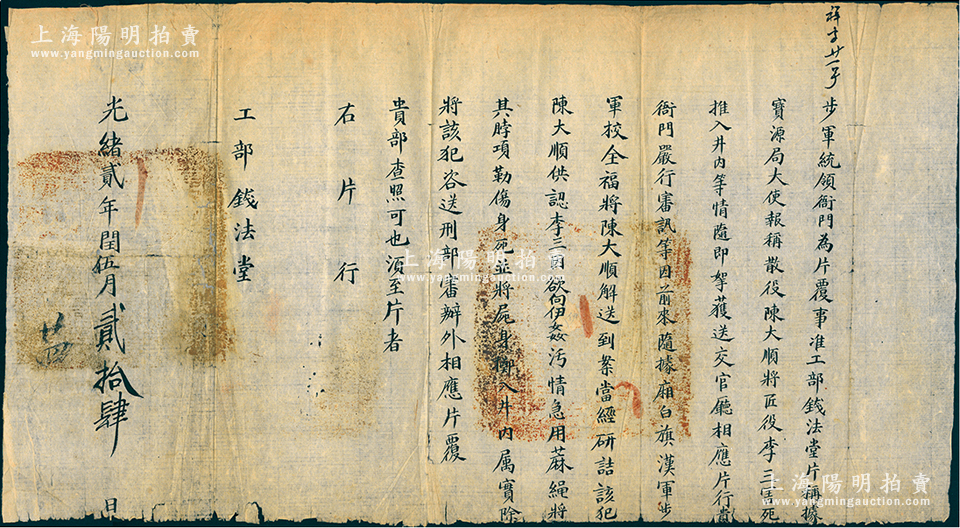 祥字廿一号
步軍統領衙門為片覆事准工部錢法堂片稱據
寶源局大使報稱散役陳大順將匠役李三害死
推入井內等情隨即拏獲送交官廳相應片行貴
衙門嚴行審訊等因前來隨據廂白旗漢軍步
軍校全福將陳大順解送到案當經研詰該犯
陳大順供認李三自欲向伊姦污情急用蔴繩將
其脖項勒傷身死並將屍身擲入井內属實除
將該犯咨送刑部審辦外相應片覆
貴部查照可也須至片者
右片行
工部錢法堂
光緒貳年閏伍月貳拾肆日
廿四
上海陽明拍賣
www.yangmingauction.com
上海陽明拍賣
www.yangmingauction.com
上海陽明拍賣
www.yangmingauction.com